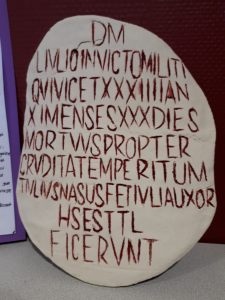 DM
LIVLIOINVICTOMILITI
QVIVICETXXXIIIIAN
XIMENSESXXXDIES
MORTVVSPROPTER
CRVDITATEMPERITUM
TIVLIVSNASUSFETIVLIAUXOR
HSESTTL
FICERVNT